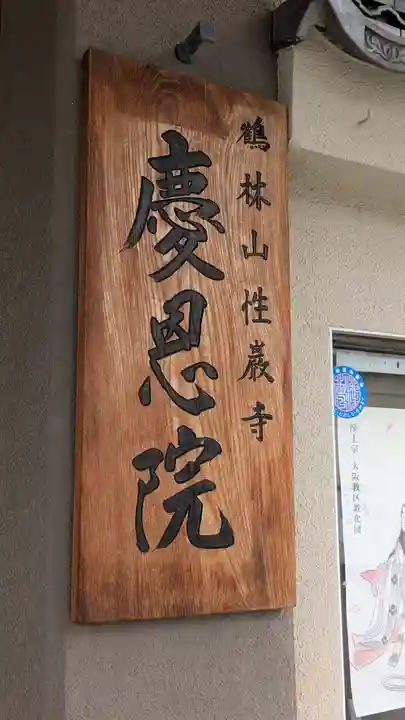 鶴林山性巖寺
慶恩院
浄土宗 大阪教区教化団